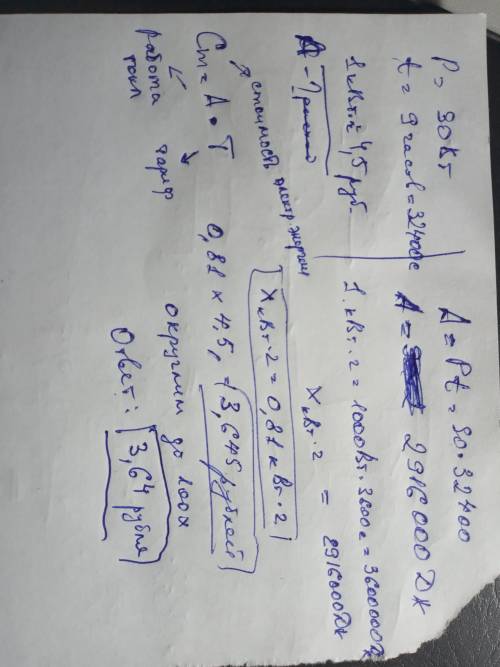 P = 90 Вт
t = 9 часов = 32400с
1 кВт·ч = 4,5 руб.
A - ?
A = Pt = 90 · 32400
A = 2916000 Дж
1 кВт·ч = 1000Вт · 3600с = 3600000Дж
X кВт·ч = 2916000Дж
X кВт·ч = 0,81 кВт·ч
стоимость электр. энергии
Cт = A · T
работа тока
тариф
0,81 × 4,5 = 3,645 рублей
округлим до 100х
Ответ: 3,64 рубля